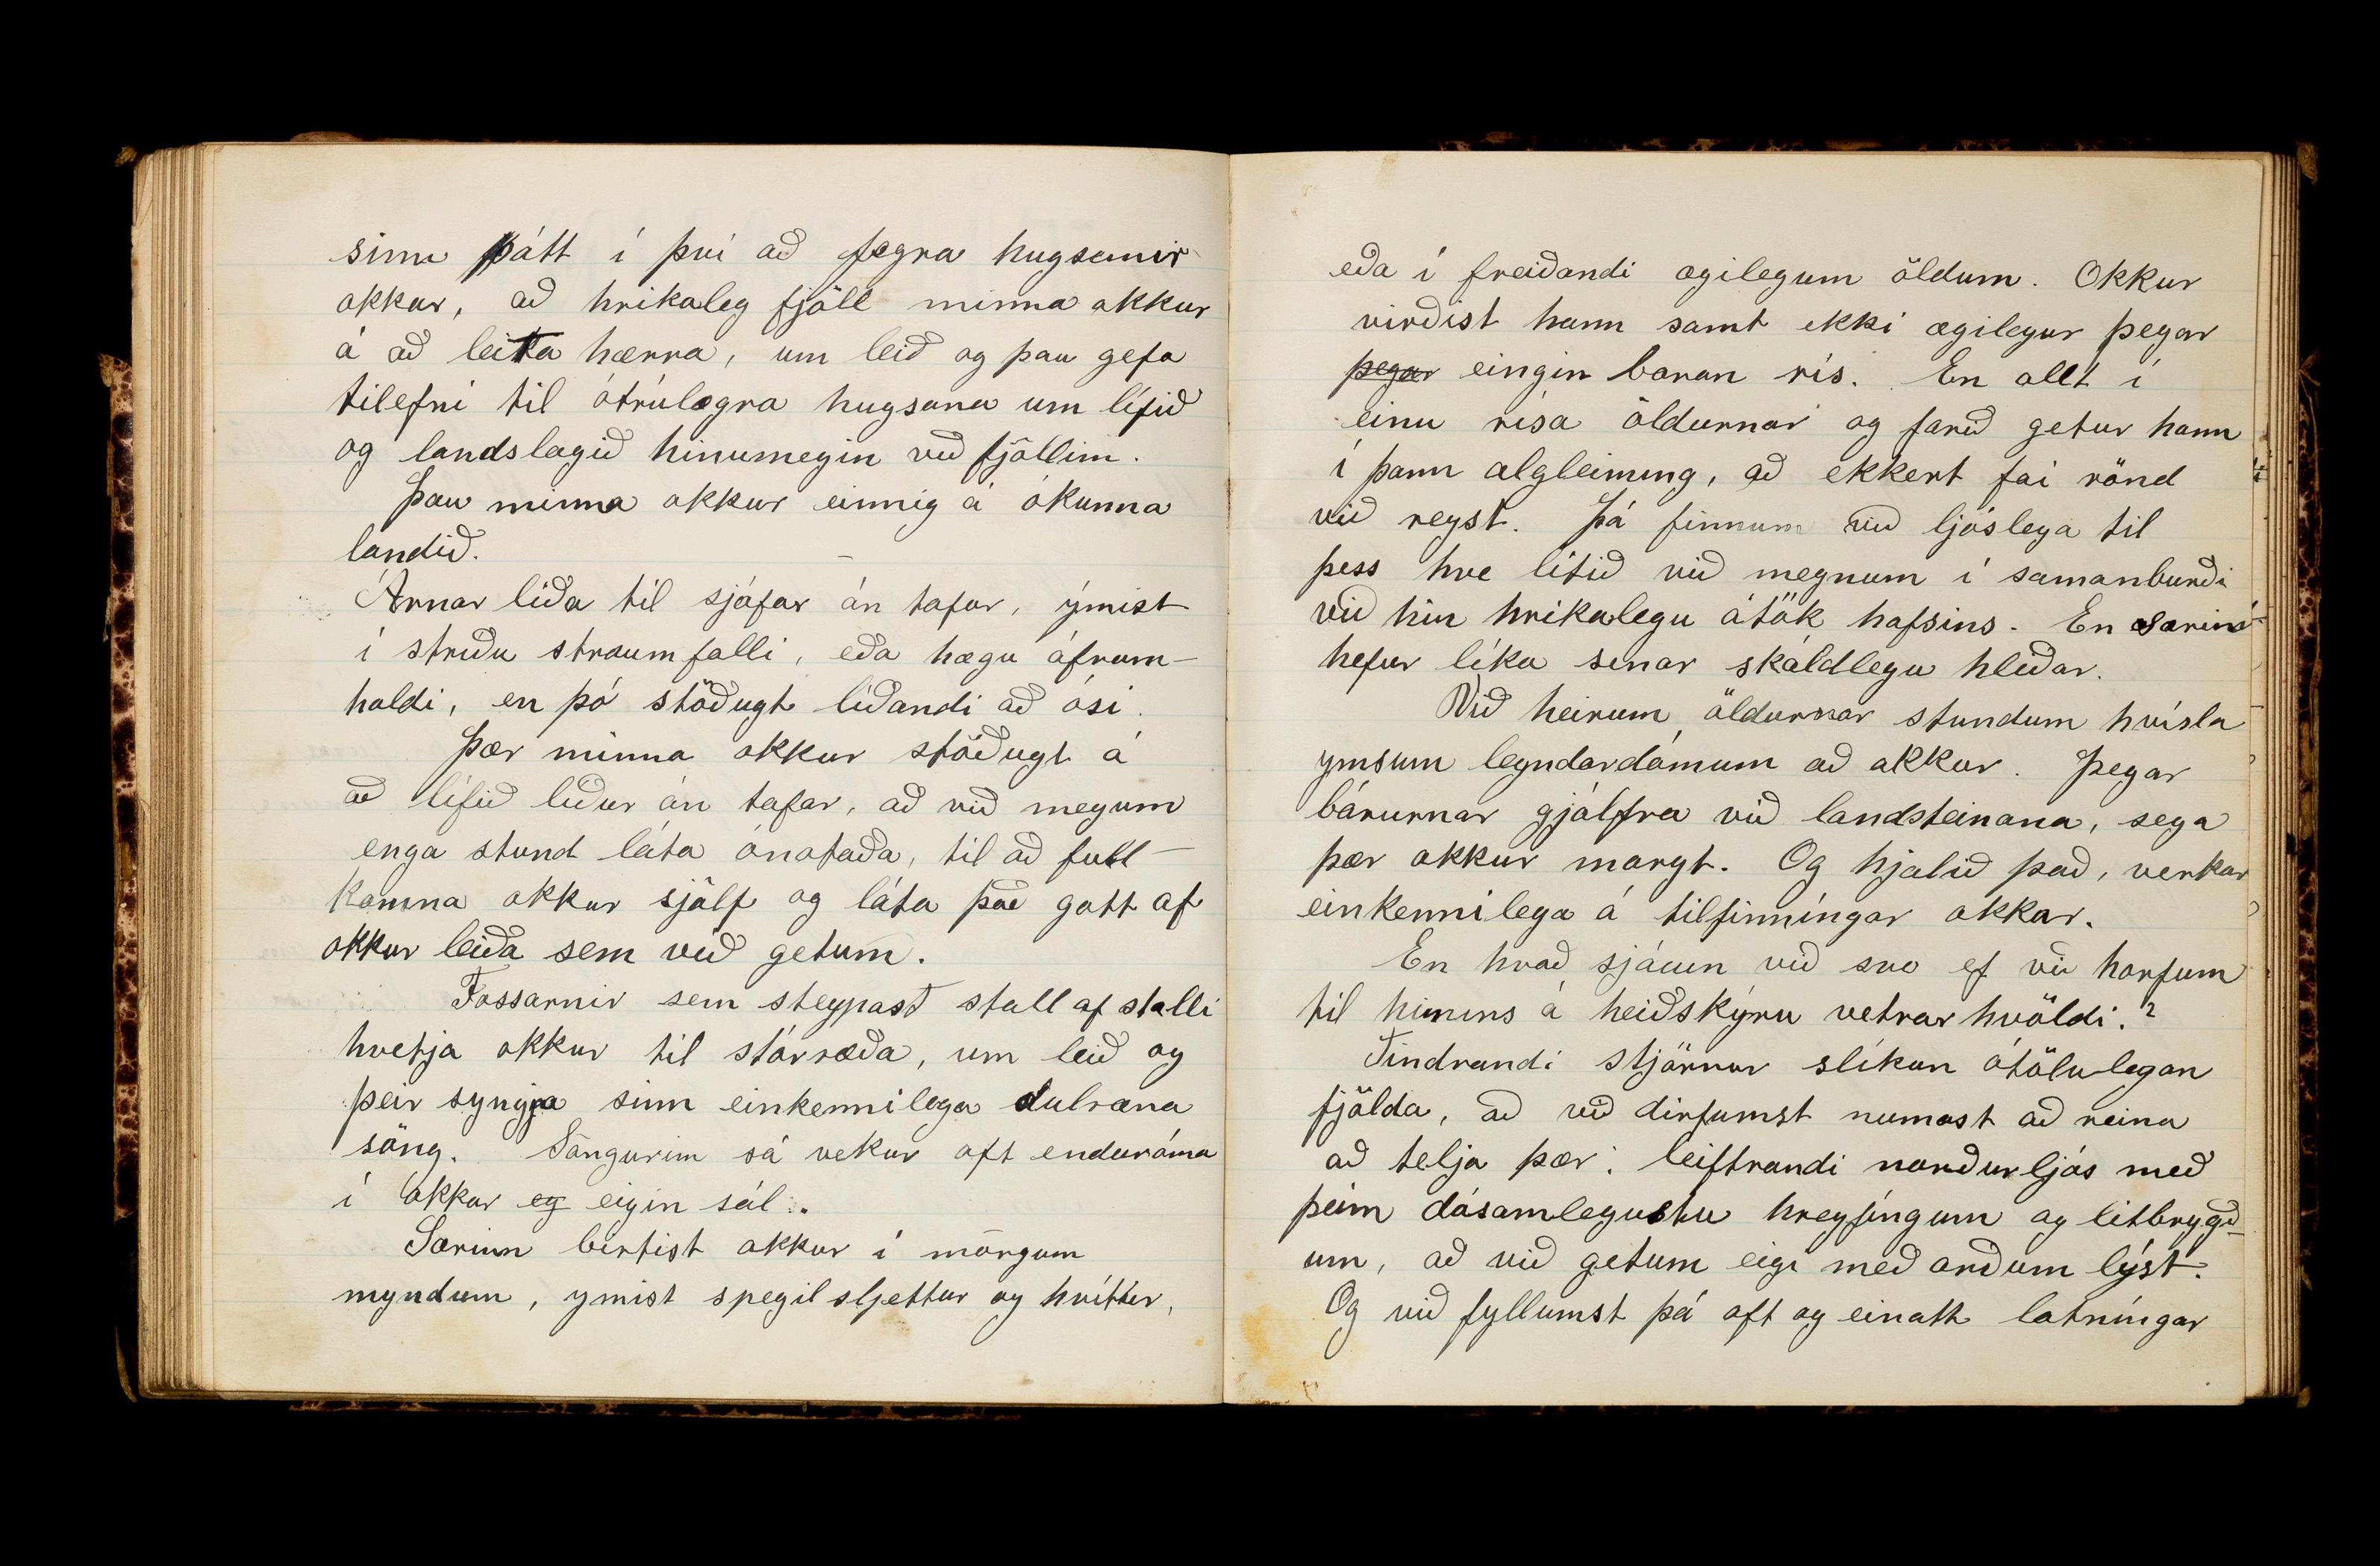 sinn þátt í því að fegra hugsanir
okkar, að hrikaleg fjöll minna okkur
á að leita hærra, um leið og þau gefa
tilefni til ótrúlegra hugsana um lífið
og landslagið hinumegin við fjöllin.
Þau minna okkur einnig á ókunna
landið.
Árnar líða til sjáfar án tafar, ýmist
í stríðu straumfalli, eða hægu áfram-
haldi, en þó stöðugt líðandi að ósi.
Þær minna okkur stöðugt á
að lífið líður án tafar, að við megum
enga stund láta ónotaða, til að full-
komna okkur sjálf og láta það gott af
okkur leiða sem við getum.
Fossarnir sem steypast stall af stalli
hvetja okkur til stórræða, um leið og
þeir syngja sinn einkennilega dulræna
söng. Söngurinn sá vekur oft enduróma
í okkar eg eigin sál.
Særinn birtist okkur í mörgum
myndum, ymist spegilsljettur og hvíttir,
eða í freiðandi ægilegum öldum. Okkur
virðist hann samt ekki ægilegur þegar
þegar eingin baran rís. En allt í
einu rísa öldurnar og farið getur hann
í þann algleiming, að ekkert fái rönd
við reyst. Þá finnum við ljóslega til
þess hve lítið við megnum í samanburði
við hin hrikalegu átök hafsins. En særinn
hefur líka sínar skáldlegu hliðar.
Við heirum öldurnar stundum hvísla
ymsum leyndardómum að okkur. Þegar
bárurnar gjálfra við landsteinana, sega
þær okkur margt. Og hjalið það, verkar
einkennilega á tilfinníngar okkar.
En hvað sjáum við svo ef við horfum
til himins á heiðskýru vetrarkvöldi.?
Tindrandi stjörnur slíkan ótölulegan
fjölda, að við dirfumst numast að reina
að telja þær; leiftrandi norðurljós með
þeim dásamlegustu hreyfíngum og litbrygð-
um, að við getum eigi með orðum lýst.
Og við fyllumst þá oft og einatt lotníngar